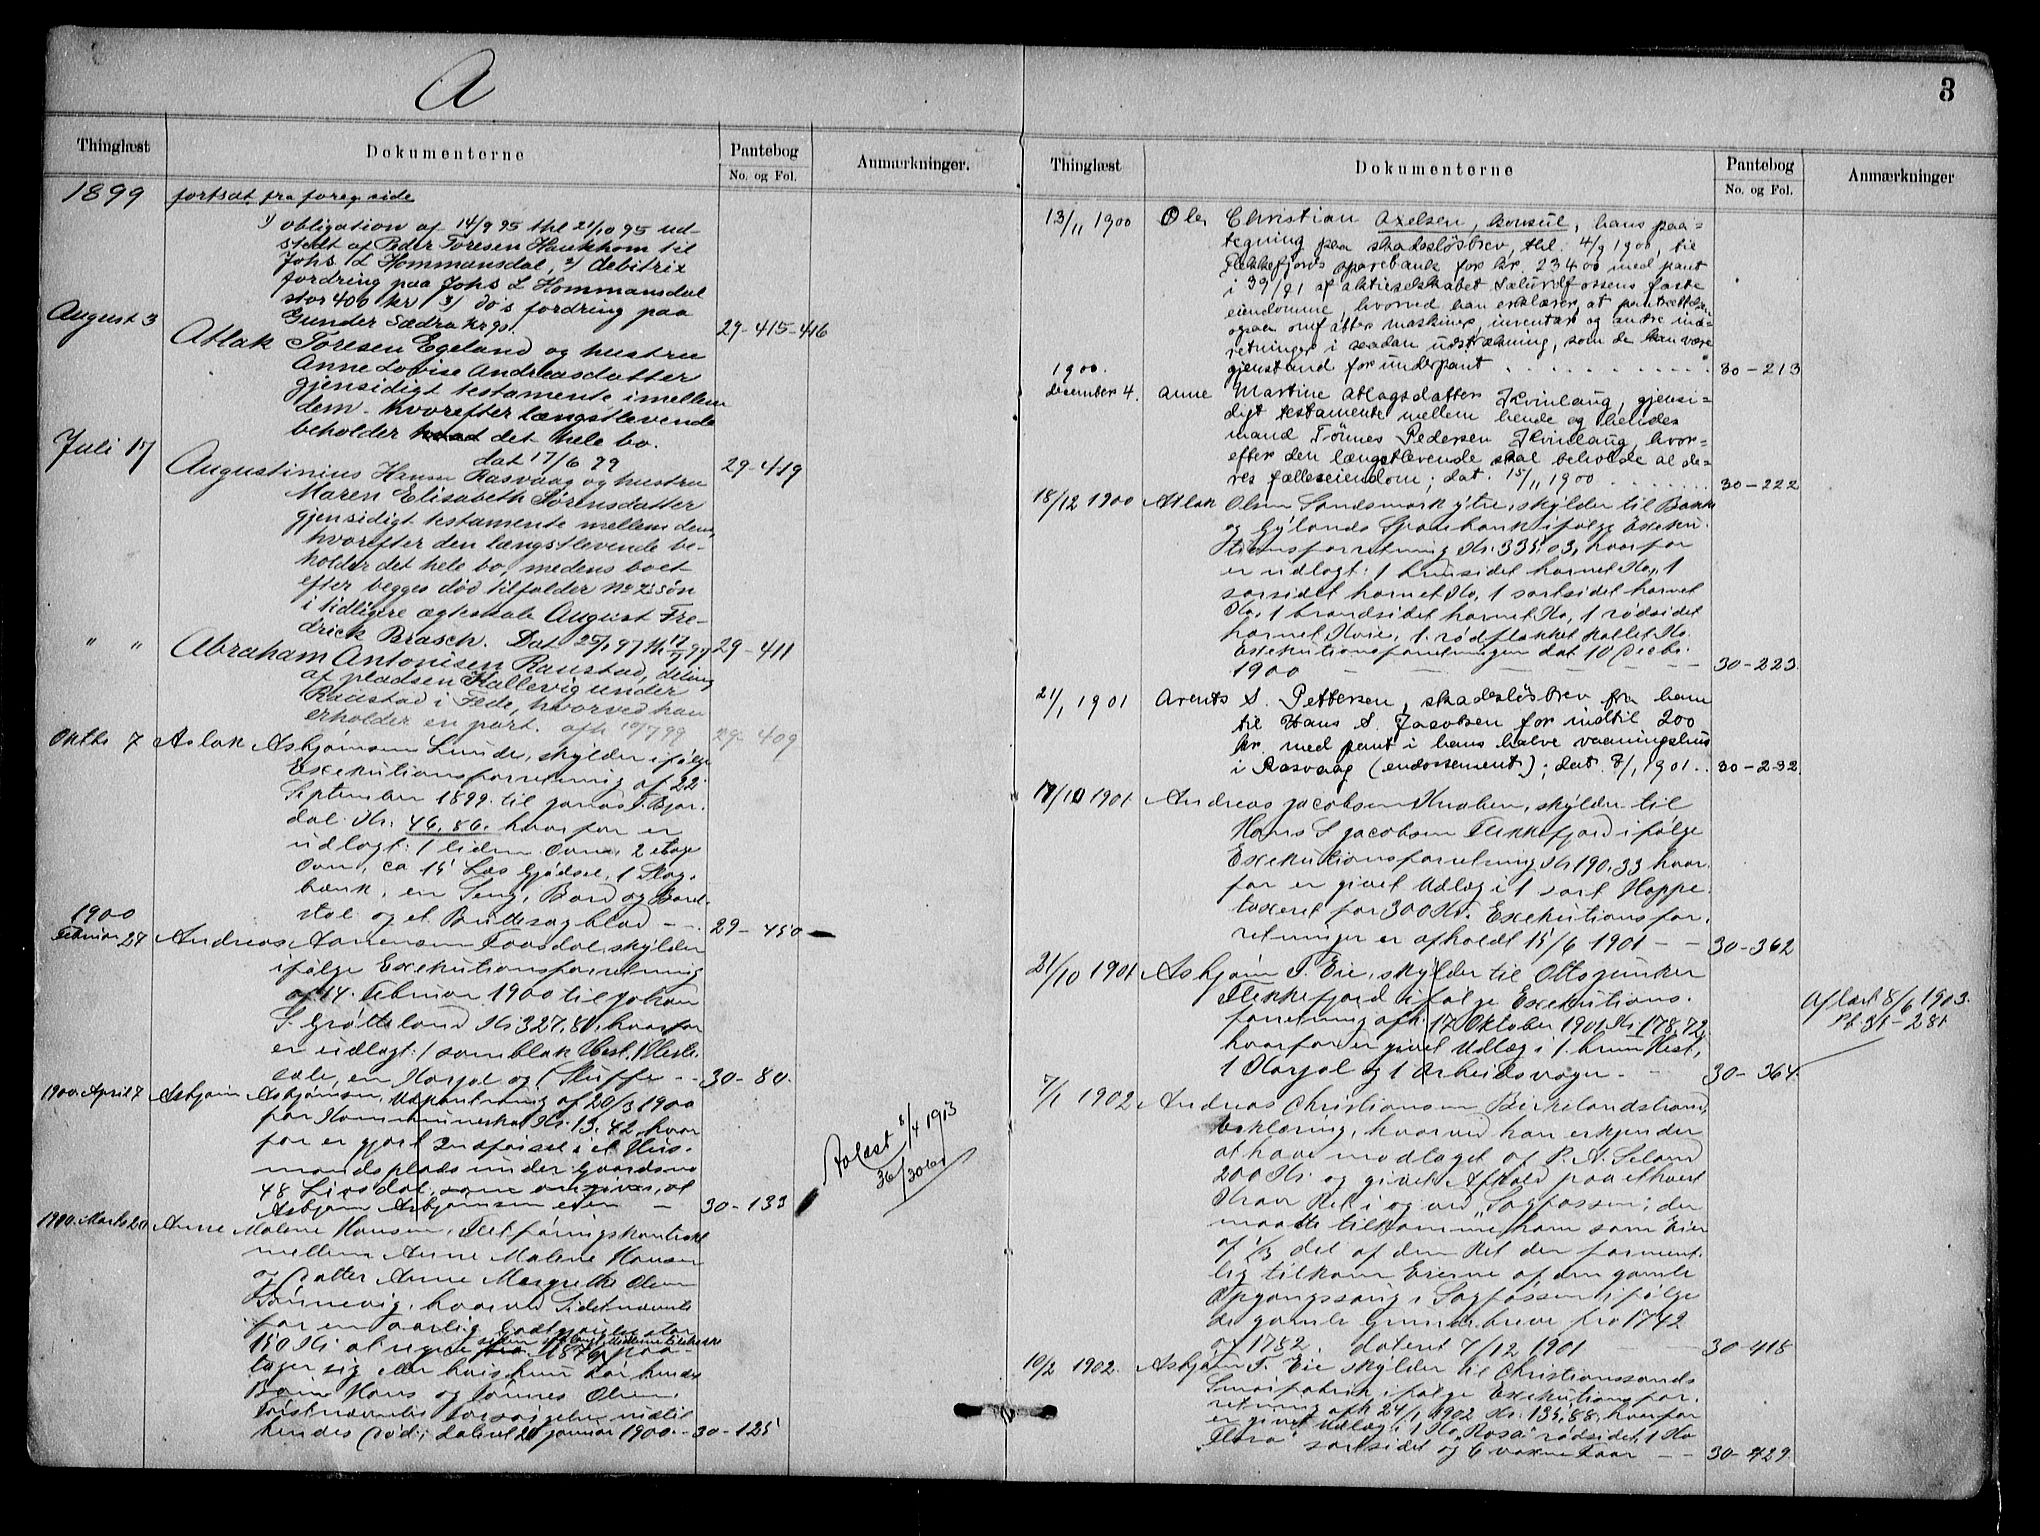 A
3
Thinglæst
Dokumenterne
Pantebog
No. og Fol.
Anmærkninger.
1899
fortsat fra foreg side
1) obligation af 14/9 95 thl 21/10 95 ud-
stedt af Peder Toresen Haukhom til
Johs L Hommansdal, 2) debitrix
fordring paa Johs L Hommansdal
stor 400 kr 3) do's fordring paa
Gunder Sædra kr gs.
29-415-416
August 3
Atlak Toresen Egeland og hustru
Anne Lovise Andreasdatter
gjensidigt testamente imellem
dem. hvorefter længstlevende
beholder det hele bo.
dat 17/6 99
29-419
Juli 17
Augustinius Hansen Rasvaag og hustru
Maren Elisabeth Sørensdatter
gjensidigt testamente mellem dem,
hvorefter den længstlevende be-
holder det hele bo, medens boet
efter begges død tilfalder søn
i tidligere ægteskab August Fre-
drick Brasch. Dat 25/1 97
29-411
" "
Abraham Antonisen Raustad, deling
af pladsen Hallevig under
Raustad i Fede, hvorved han
erholder en part. afh 10/7 99
29-409
Oktbr 7
Aslak Asbjørnsen Lunde, skylder ifølge
Exekutionsforretning af 22
September 1899 til Jonas T. Bjor-
dal Kr. 46.86. hvorfor er
udlagt: 1 liden Ovn, 2 etage
Ovn, ca 15 Læs Gjødsel, 1 Slag-
bænk, en Seng, Bord og
stol og et Buttesagblad - -
29-450
1900
Februar 27
Andreas Aanensen Faasdal, skylder
ifølge Exekutionsforretning
af 14. Februar 1900 til Johan
S. Grøtteland Kr 327,80, hvorfor
er udlagt: 1 sortblak Hest, 1 Heste-
sæle, en Karjol og 1 Sluffe - -
30-80.
1900 April 7
Asbjørn Asbjørnsen, Udpantning af 20/3 1900
for Kommuneskat Kr. 13.42, hvor
for er gjort Indførsel i et Hus-
mandsplads under Gaardsno
48 Liosdal, som angives, at
Asbjørn Asbjørnsen eier -
30-133
Avlæst 8/4 1913
36/30
1900 Marts 20
Anne Malene Hansen, Fletføringskontrakt
mellem Anne Malene Hansen
og Datter Anne Margrethe Olsen
Tønnevig, hvorved Sidstnævnte
for en aarlig Godtgjørelse stor
150 Kr at regne 1879, paa-
tager sig eller hvis hun dør hendes
Børn Hans og Tønnes Olsen,
Førstnævntes Forsørgelse indtil
hendes Død; dateret 20 Januar 1900. -
30-125
Thinglæst
Dokumenterne
Pantebog
No. og Fol.
Anmærkninger
13/11 1900
Ole Christian Axelsen, konsul, hans paa-
tegning paa skadesløsbrev, thl. 4/9 1900, til
Flekkefjords sparebank for kr. 23400 med pant
i 39/91 af aktieselskabet faste
eiendomme, hvorved han erklærer, at pantretten
ogsaa omfatter maskiner, inventar og andre ind-
retninger i saadan udstrækning, som de kan være
gjenstand for underpant
30-213
1900.
desember 4.
Anne Martine Atlagsdatter Kvinlaug, gjensi-
digt testamente mellem hende og hendes
mand Tønnes Pedersen Kvinlaug, hvor-
efter den længstlevende skal beholde al de-
res fælleseiendom; dat. 15/11 1900
30-222
18/12 1900
Atlak Olsen Sandsmark ytre, skylder til Bakke
og Gylands Sparebank ifølge Exeku-
tionsforretning Kr. 335,03, hvorfor
er udlagt: 1 hornet Ko, 1
sortsidet hornet Ko, 1 sortsidet hornet
Ko, 1 brandsidet hornet Ko, 1 rødsidet
hornet Kvie, 1. rødflakket kollet Ko.
Exekutionsforretningen dat 10 Decbr.
1900
30-223.
21/1 1901
Arents S. Pettersen, skadesløsbrev fra ham
til Hans S. Jacobsen for indtil 200
kr. med pant i hans halve vaaningshus
i Rasvaag (endossement); dat. 8/1 1901.
30-232.
17/10 1901
Andreas Jacobsen Knaben, skylder til
Hans S Jacobsen Flekkefjord ifølge
Exekutionsforretning Kr 190,33 hvor-
for er givet Udlæg i 1 sort Hoppe
taxeret for 300 Kr. Exekutionsfor-
retningen er afholdt 15/6 1901 - -
30-362
21/10 1901
Asbjørn T. Eie, skylder til Otto Junker
Flekkefjord ifølge Exekutions-
forretning afh. 17 Oktober 1901 Kr. 178,72,
hvorfor er givet Udlæg i 1 brun Hest,
1 Karjol og 1 Arbeidsvogn. -
30-364.
Aflæst 8/6 1903.
Pb 31-281
7/1 1902
Andreas Christiansen Birkelandstrand,
Erklæring, hvorved han erkjender
at have modtaget af P. A. Seland
200 Kr og givet Afkald paa ethvert
Krav Ret i og ved "Sagfossen", der
maatte tilkomme ham som Eier
af 1/3 del af den Ret der forment-
lig tilkom Eierne af den gamle
Opgangssaug i Sagfossen, ifølge
de gamle Grundebreve fra 1742
og 1782. dateret 7/12 1901
30-418
10/2 1902.
Asbjørn T. Eie skylder til Christianssands
Smørfabrik, ifølge Exekutionsfor-
retning afh 24/1 1902 Kr. 135,88, hvorfor
er givet Udlæg i 1 Ko "Rosa" rødsidet, 1 Ko
"Flora" sortsidet og 6 voxne Faar - -
30-429.